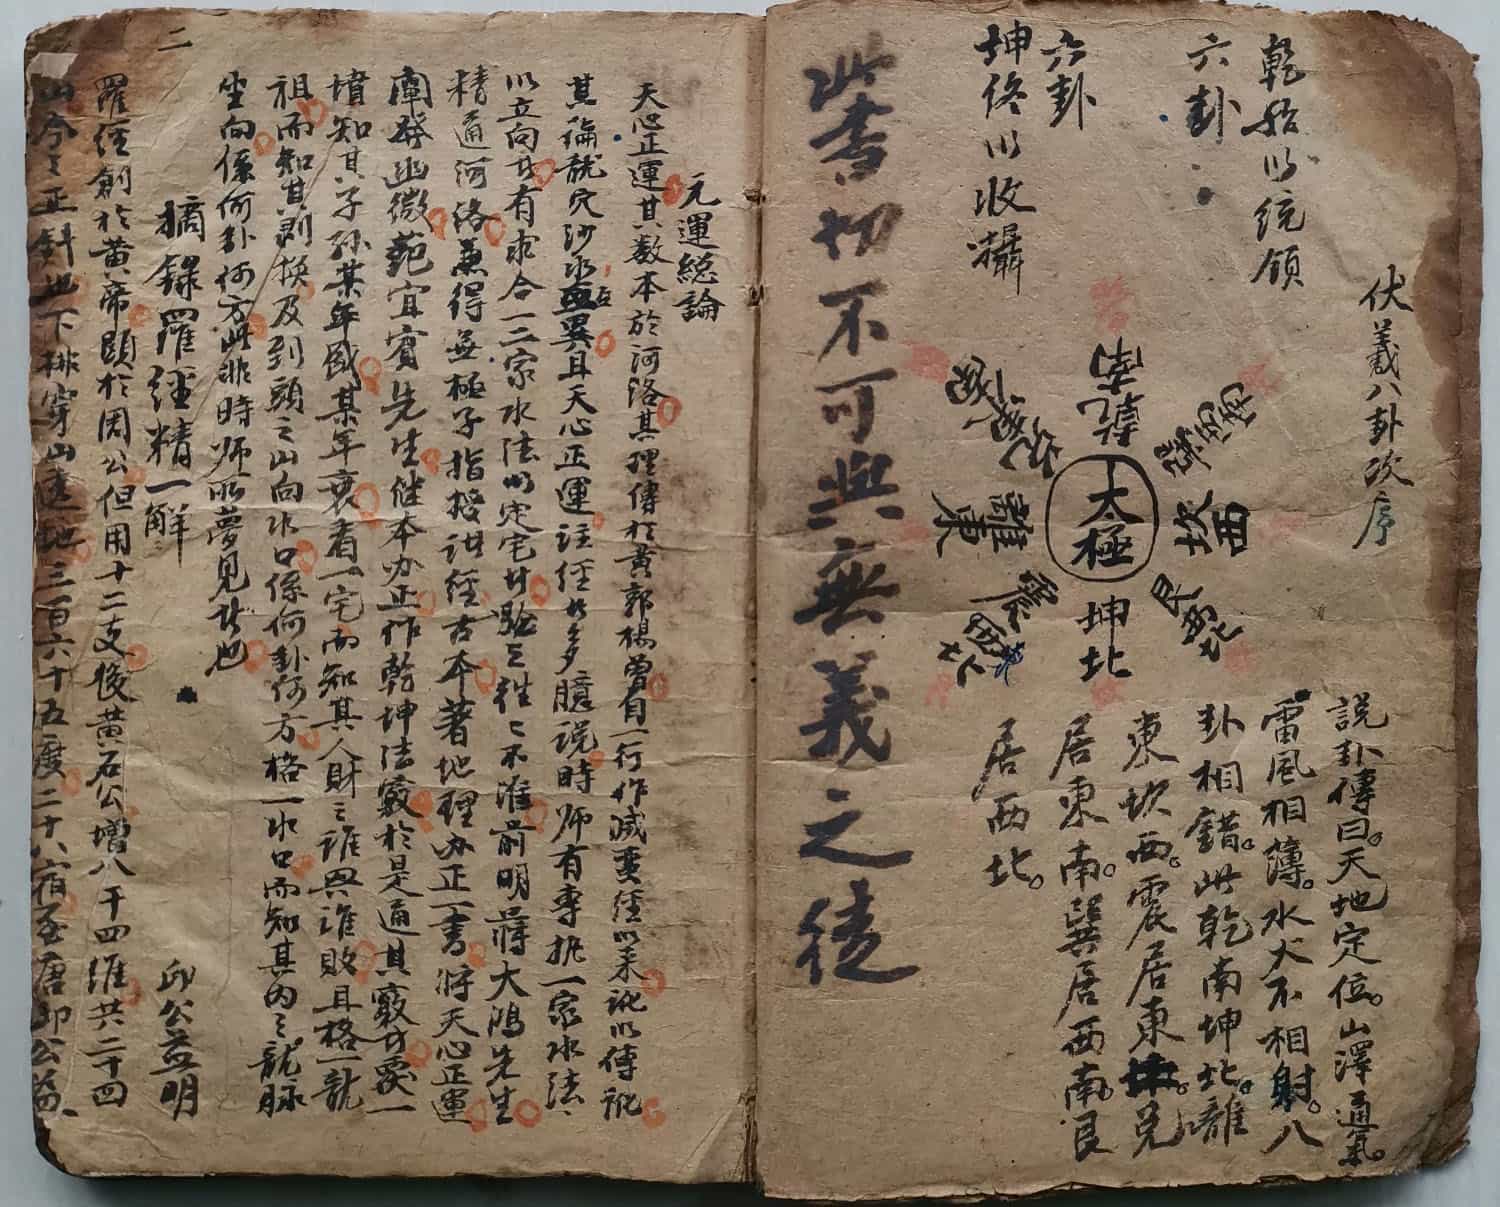 伏羲八卦次序
乾始以统領
六卦
六卦
坤终以收攝
南乾
太極
坤北
離東
坎西
震
西北
說卦傳曰。天地定位。山澤通氣。
雷風相薄。水火不相射。八
卦相錯。此乾南坤北。離
東坎西。震居東。兑
居東南。巽居西南。艮
居西北。
此書切不可與無義之徒
元運総論
天心正運其数本於河洛其理傳於黄郭楊曾自一行作滅蛮経以来訛以傳訛
其論龍穴沙水互異且天心正運註经甚多臆說時师有専执一家水法
以立向者有牵合一二家水法以定宅者驗之往之不准前明蔣大鴻先生
精通河洛兼得無極子指授註经古本著地理办正一書将天心正運
闡發幽微苑宜賓先生继本办正作乾坤法竅於是通其竅者覌一
墳知其子孙某年盛某年衰看一宅而知其人財之谁兴谁敗且格一龍
祖而知其剥换及到頭之山向水口係何卦何方格一水口而知其内之龍脉
坐向係何卦何方此非時师所夢見者也
摘錄羅经精一解
邱公益明
羅经創於黄帝顕於周公但用十二支後黄石公增八干四维共二十四
山今之正針也下排穿山透地三百六十五度二十八宿至唐邱公益
二